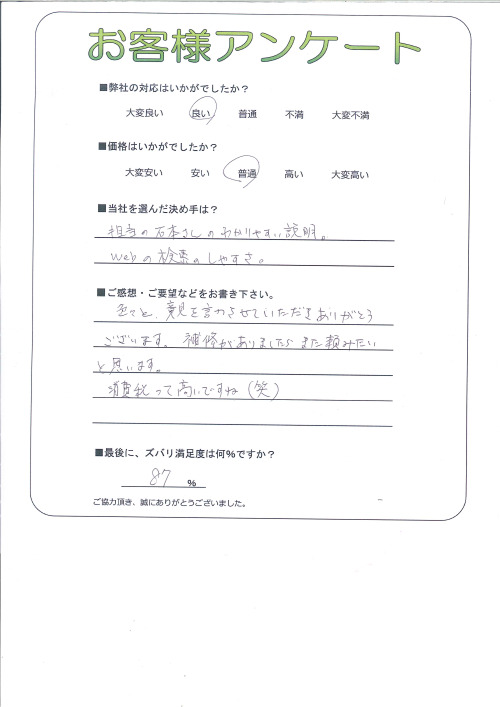 お客様アンケート
■弊社の対応はいかがでしたか？
大変良い 良い 普通 不満 大変不満
■価格はいかがでしたか？
大変安い 安い 普通 高い 大変高い
■当社を選んだ決め手は？
担当の石本さんのわかりやすい説明。
Webの検索のしやすさ。
■ご感想・ご要望などをお書き下さい。
色々と、意見を言わさせていただきありがとう
ございます。補修がありましたらまた頼みたい
と思います。
消費税って高いですね（笑）
■最後に、ズバリ満足度は何％ですか？
87 ％
ご協力頂き、誠にありがとうございました。